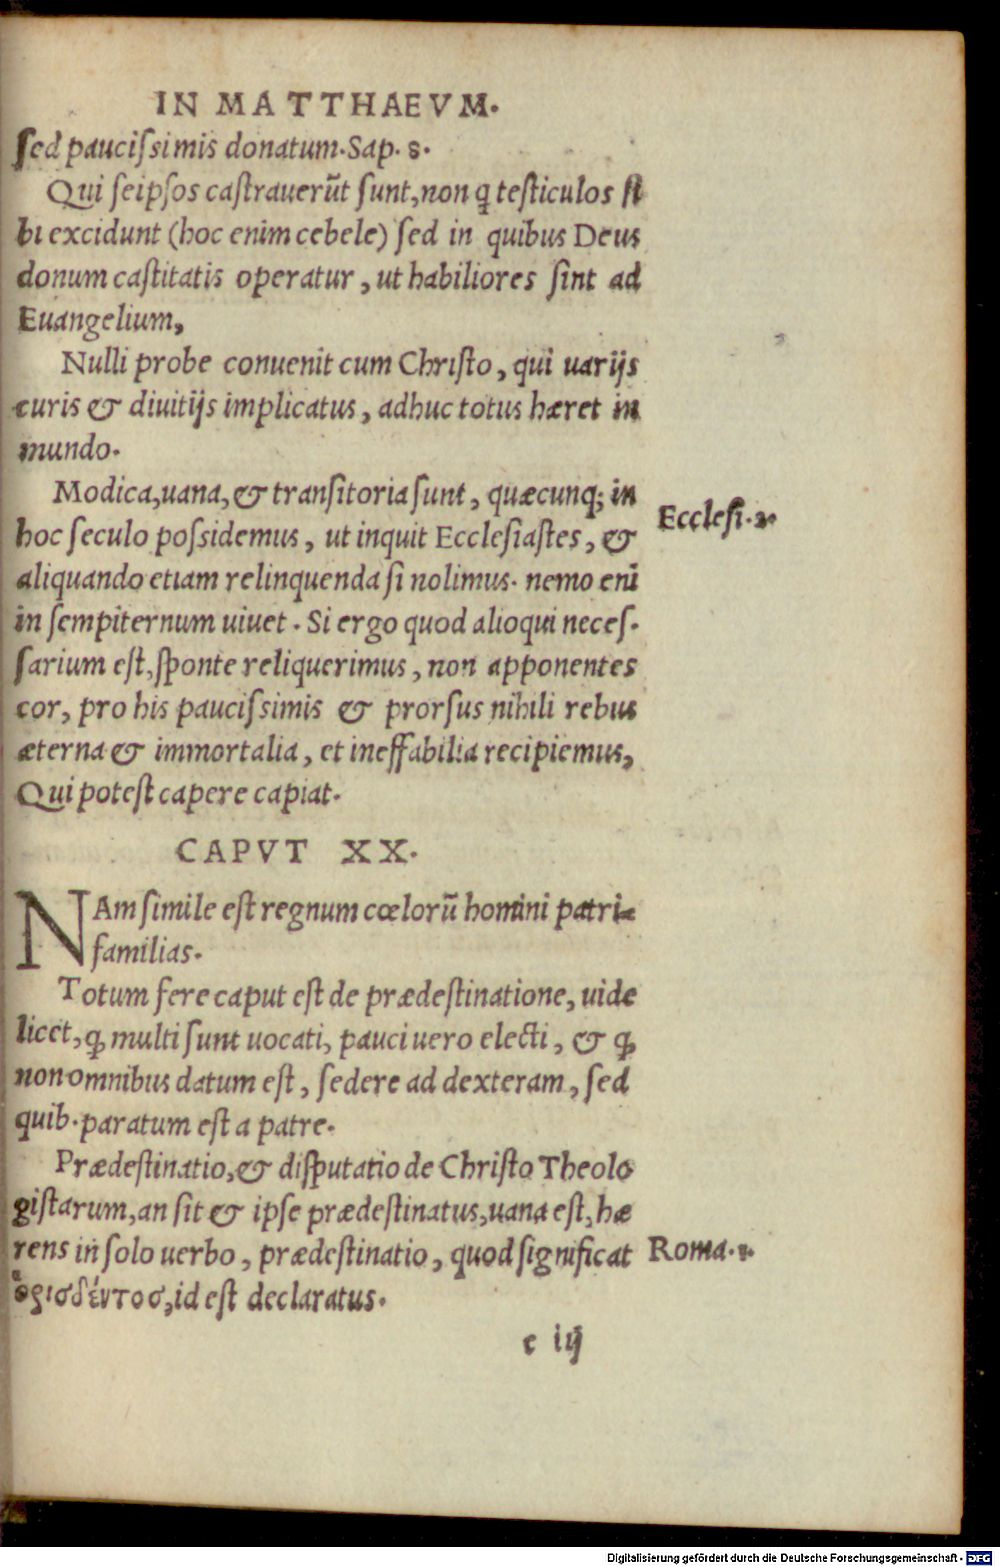 IN MATTHAEVM.
sed paucissimis donatum. Sap. 8.
Qui seipsos castrauerūt sunt, non ꝙ testiculos si
bi excidunt (hoc enim cebele) sed in quibus Deus
donum castitatis operatur, ut habiliores sint ad
Euangelium,
Nulli probe conuenit cum Christo, qui uarijs
curis & diuitijs implicatus, adhuc totus hæret in
mundo.
Modica, uana, & transitoria sunt, quæcunq; in
hoc seculo possidemus, ut inquit Ecclesiastes, &
Ecclesi. 2.
aliquando etiam relinquenda si nolimus. nemo eni̅
in sempiternum uiuet. Si ergo quod alioqui neces-
sarium est, sponte reliquerimus, non apponentes
cor, pro his paucissimis & prorsus nihili rebus
æterna & immortalia, et ineffabilia recipiemus,
Qui potest capere capiat.
CAPVT XX.
NAm simile est regnum cœlorū homini patri-
familias.
Totum fere caput est de prædestinatione, uide
licet, ꝙ multi sunt uocati, pauci uero electi, & ꝙ
non omnibus datum est, sedere ad dexteram, sed
quib. paratum est a patre.
Prædestinatio, & disputatio de Christo Theolo
gistarum, an sit & ipse prædestinatus, uana est, hæ
rens in solo uerbo, prædestinatio, quod significat
Roma. 1.
ὁρισδέντοσ, id est declaratus.
c iij
Digitalisierung gefördert durch die Deutsche Forschungsgemeinschaft - DFG